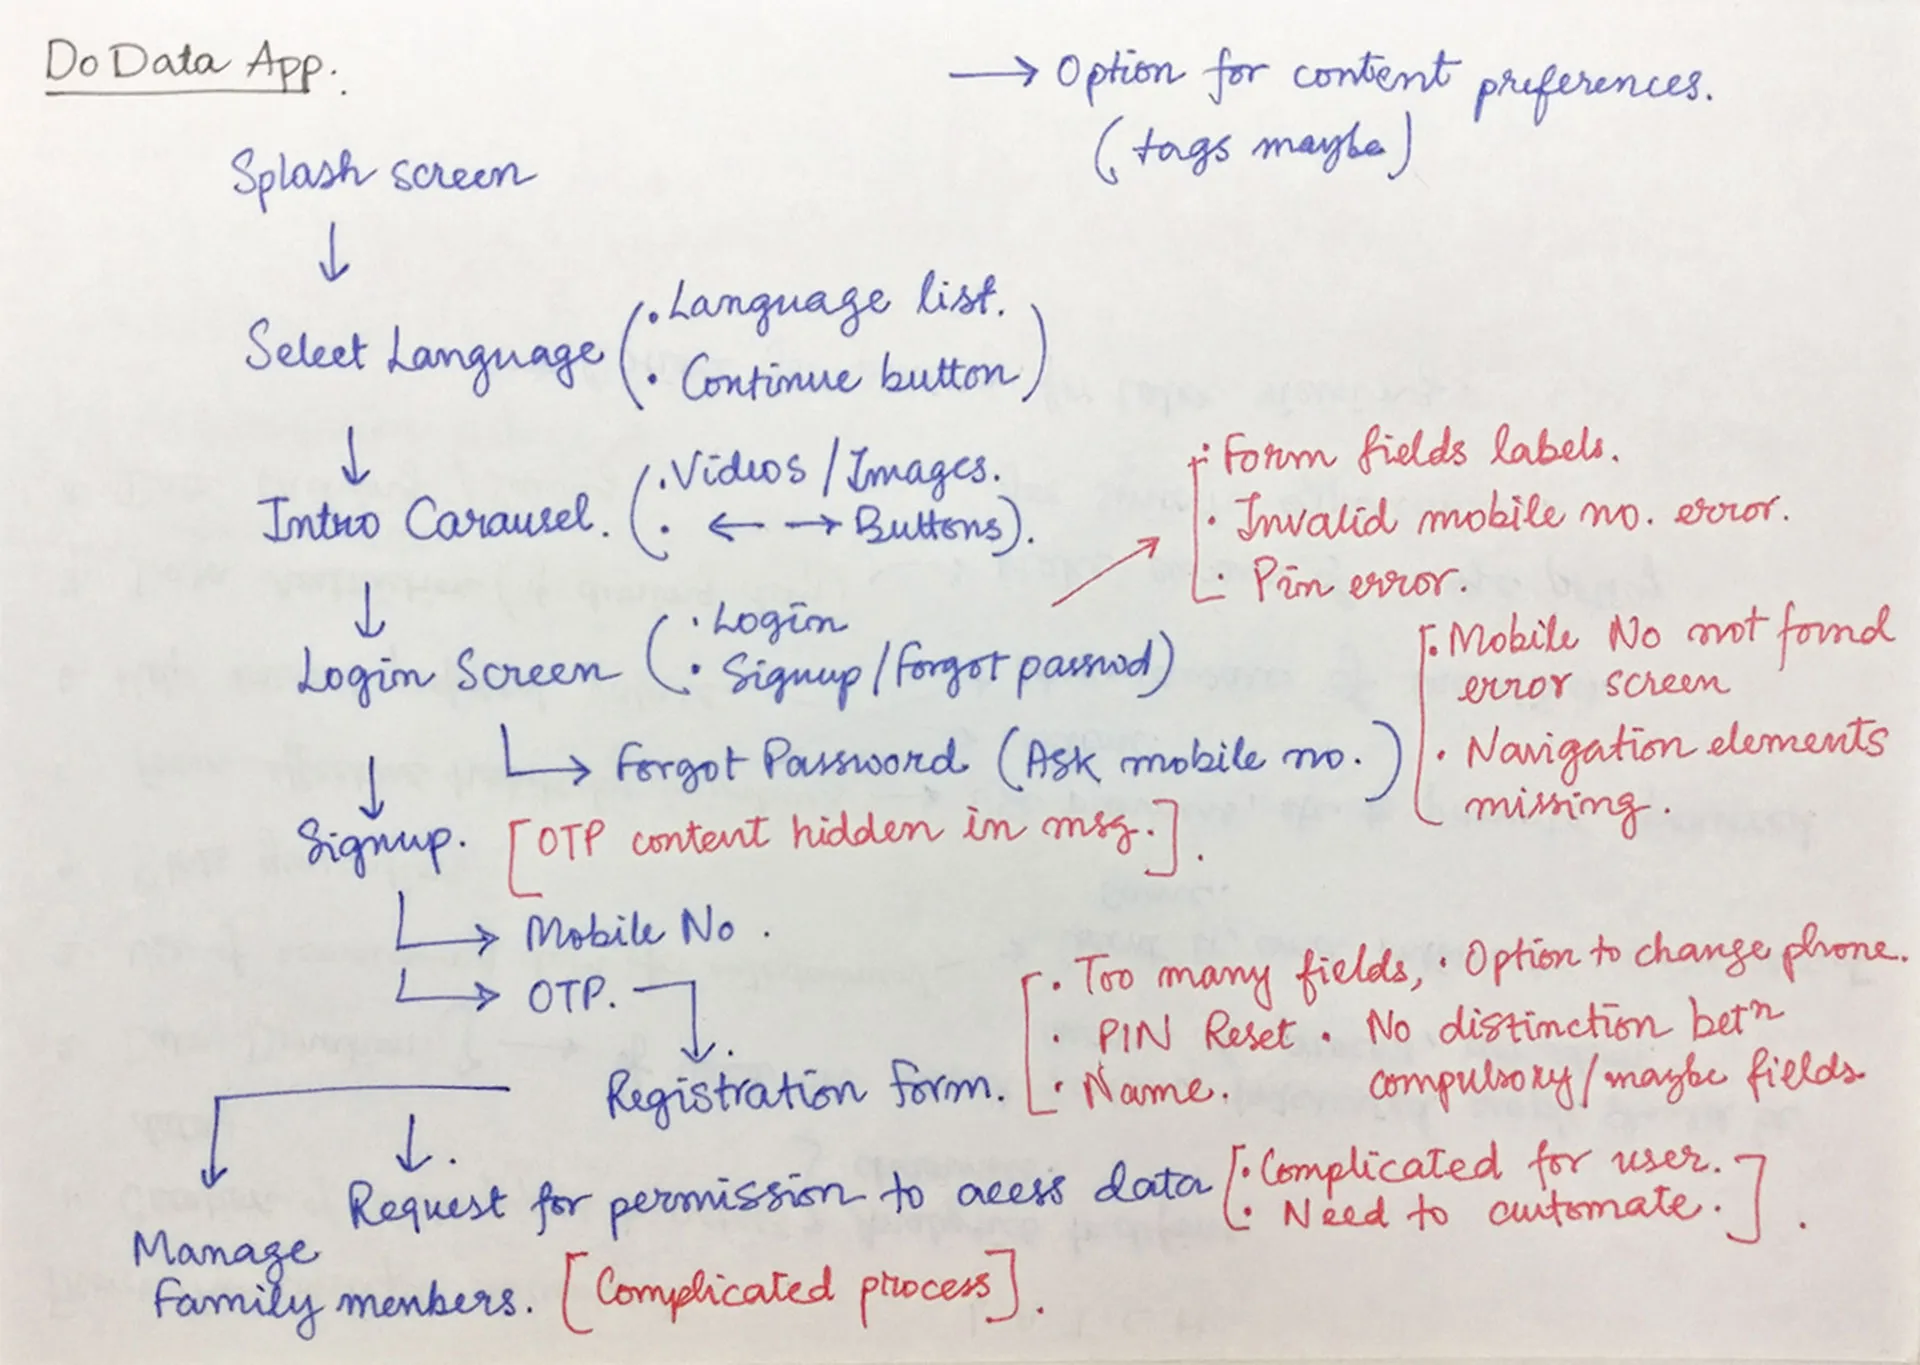 Do Data App.
→ Option for content preferences.
(tags maybe)
Splash screen
↓
Select Language (• Language list.
• Continue button)
↓
Intro Carausel. (• Videos / Images.
• ← → Buttons).
↓
Login Screen (• Login
• Signup / Forgot passwd)
→ [• Form fields labels.
• Invalid mobile no. error.
• Pin error.
↳ Forgot Password (Ask mobile no.)
[• Mobile No not found
error screen
• Navigation elements
missing.
↓
Signup. [OTP content hidden in msg.].
↳ Mobile No.
↳ OTP.
↓.
Registration form. [• Too many fields, • Option to change phone.
• PIN Reset • No distinction betn
• Name. compulsory / maybe fields
↓.
Request for permission to acess data [• Complicated for user.
• Need to automate.].
↓
Manage
Family members. [Complicated process].